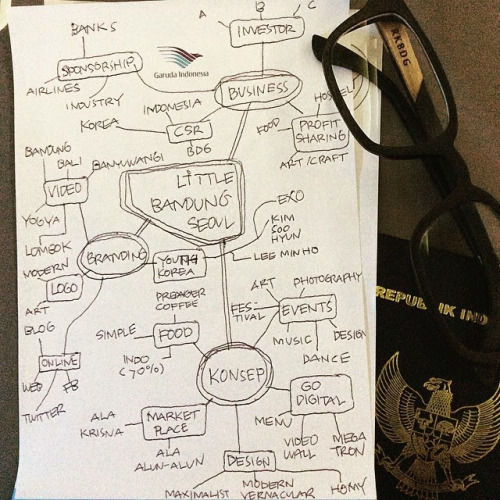 BANKS
A
B
C
INVESTOR
SPONSORSHIP
Garuda Indonesia
AIRLINES
INDUSTRY
BUSINESS
INDONESIA
KOREA
CSR
BDG
FOOD
PROFIT
SHARING
ART/CRAFT
BANDUNG
BALI
BANYUWANGI
VIDEO
YOGYA
LOMBOK
LITTLE
BANDUNG
SEOUL
EXO
KIM
SOO
HYUN
LEE MIN HO
BRANDING
YOUTH
KOREA
MODERN
LOGO
ART
PREANGER
COFFEE
ART
PHOTOGRAPHY
FES-
TIVAL
EVENTS
MUSIC
DESIGN
DANCE
BLOG
ONLINE
WEB
FB
TWITTER
SIMPLE
FOOD
INDO
(70%)
KONSEP
GO
DIGITAL
MENU
VIDEO
WALL
MEGA
TRON
ALA
KRISNA
MARKET
PLACE
ALA
ALUN-ALUN
DESIGN
MAXIMALIST
MODERN
VERNACULAR
RKBDG
REPUBLIK INDO